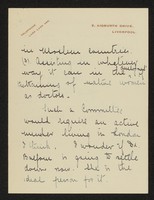 8, SIGNORTH DRIVE,
LIVERPOOL.
in Moslem countries.
(3) Assisting in whatever
way it can in the
training of native women
as doctors.
Such a Committee
would require an active
member living in London
I think. I wonder if Dr
Balfour is going to settle
down now. She is the
ideal person for it